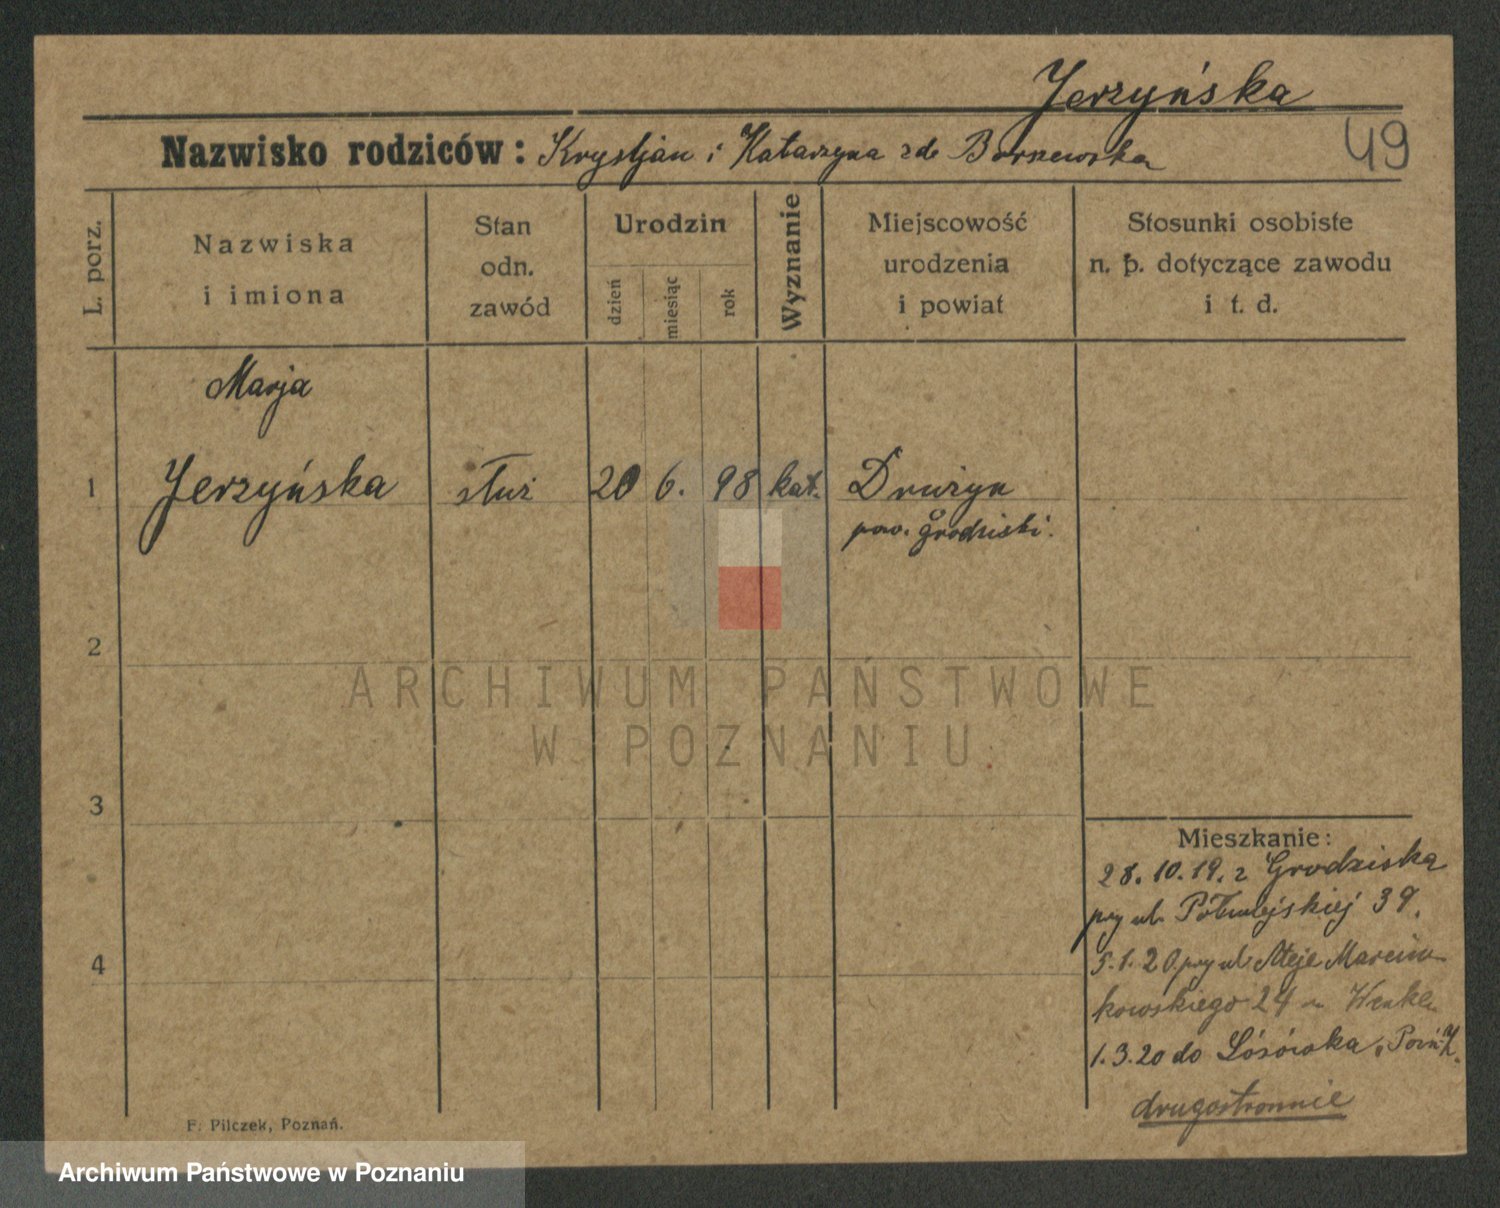 Jerzyńska
49
Nazwisko rodziców: Krystjan i Katarzyna zde
L. porz.
Nazwiska
i imiona
Stan
odn.
zawód
Urodzin
dzień
miesiąc
rok
Wyznanie
Miejscowość
urodzenia
i powiat
Stosunki osobiste
n. p. dotyczące zawodu
i t. d.
Marja
1 Jerzyńska służ 20 6. 98 kat. Drużyn
pow. grodziski.
2
ARCHIWUM PAŃSTWOWE
W POZNANIU
3
Mieszkanie:
28.10.19. z Grodziska
przy ul. Półwiejskiej 39.
5.1.20 przy ul. Aleje Marcin
4
kowskiego 24
1.3.20 do
drugostronnie
F. Pilczek, Poznań.
Archiwum Państwowe w Poznaniu